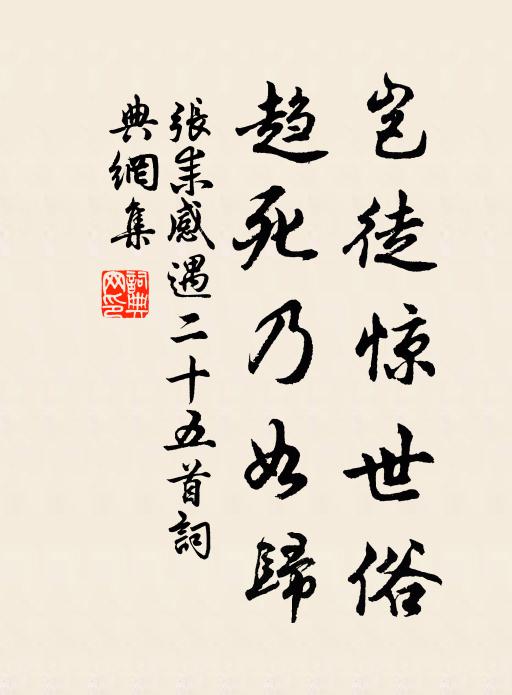 岂徒惊世俗
趋死乃如歸
張耒感遇二十五首詞
典網集
詞典網印